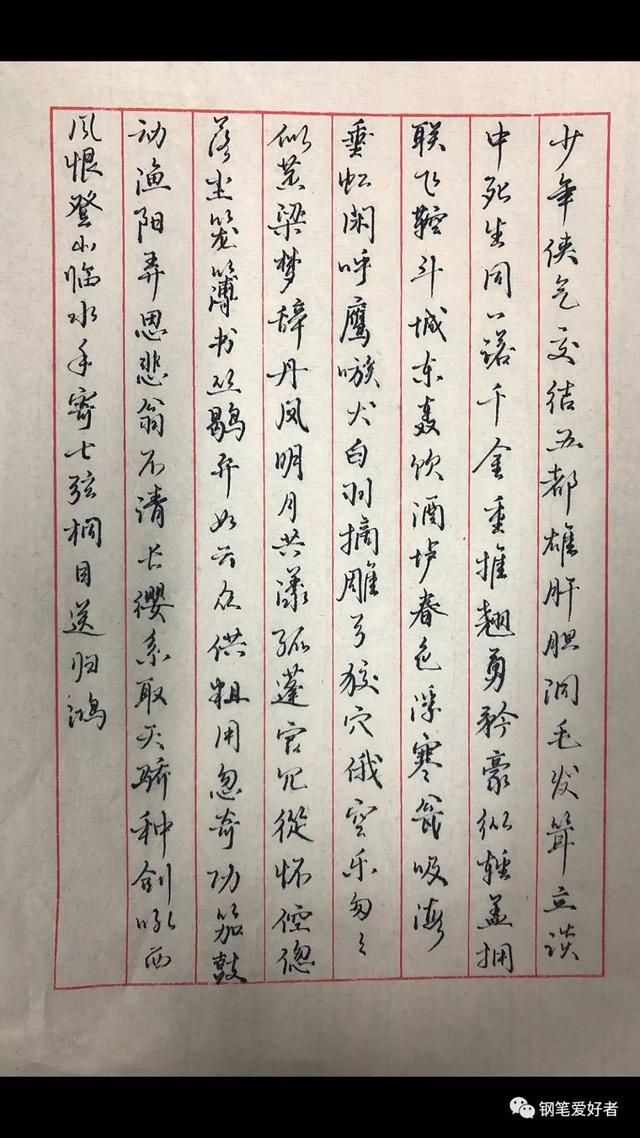 少年侠气交结五都雄肝胆洞毛发耸立谈
中死生同一诺千金重推翘勇矜豪纵轻盖拥
联飞鞚斗城东轰饮酒垆春色浮寒瓮吸海
垂虹闲呼鹰嗾犬白羽摘雕弓狡穴俄空乐匆々
似黄梁梦辞丹凤明月共漾孤蓬官冗從怀倥偬
落尘笼簿书丛鹖弁如云众供粗用忽奇功笳鼓
动渔阳弄思悲翁不请长缨系取天骄种剑吼西
风恨登山临水手寄七弦桐目送归鸿
钢笔爱好者